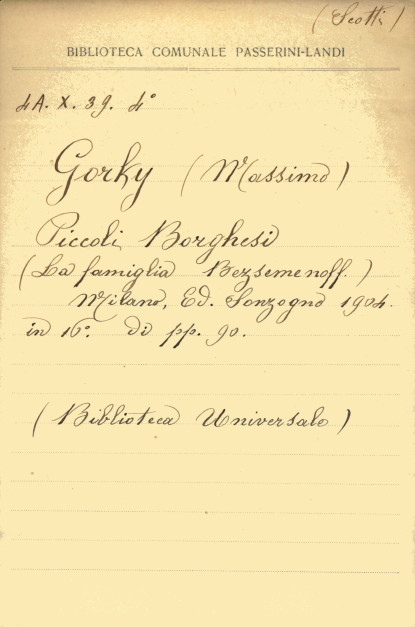 (Scotti)
BIBLIOTECA COMUNALE PASSERINI-LANDI
4A. X. 39. 4°
Gorky (Massimo)
Piccoli Borghesi
(La famiglia Bezsemenoff.)
Milano, Ed. Sonzogno 1904.
in 16°. di pp. 90.
(Biblioteca Universale)